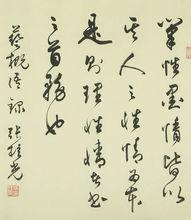 筆性墨情皆以
其人之性情為本
是則理性情者書
之首務也
藝概語錄 張桂光